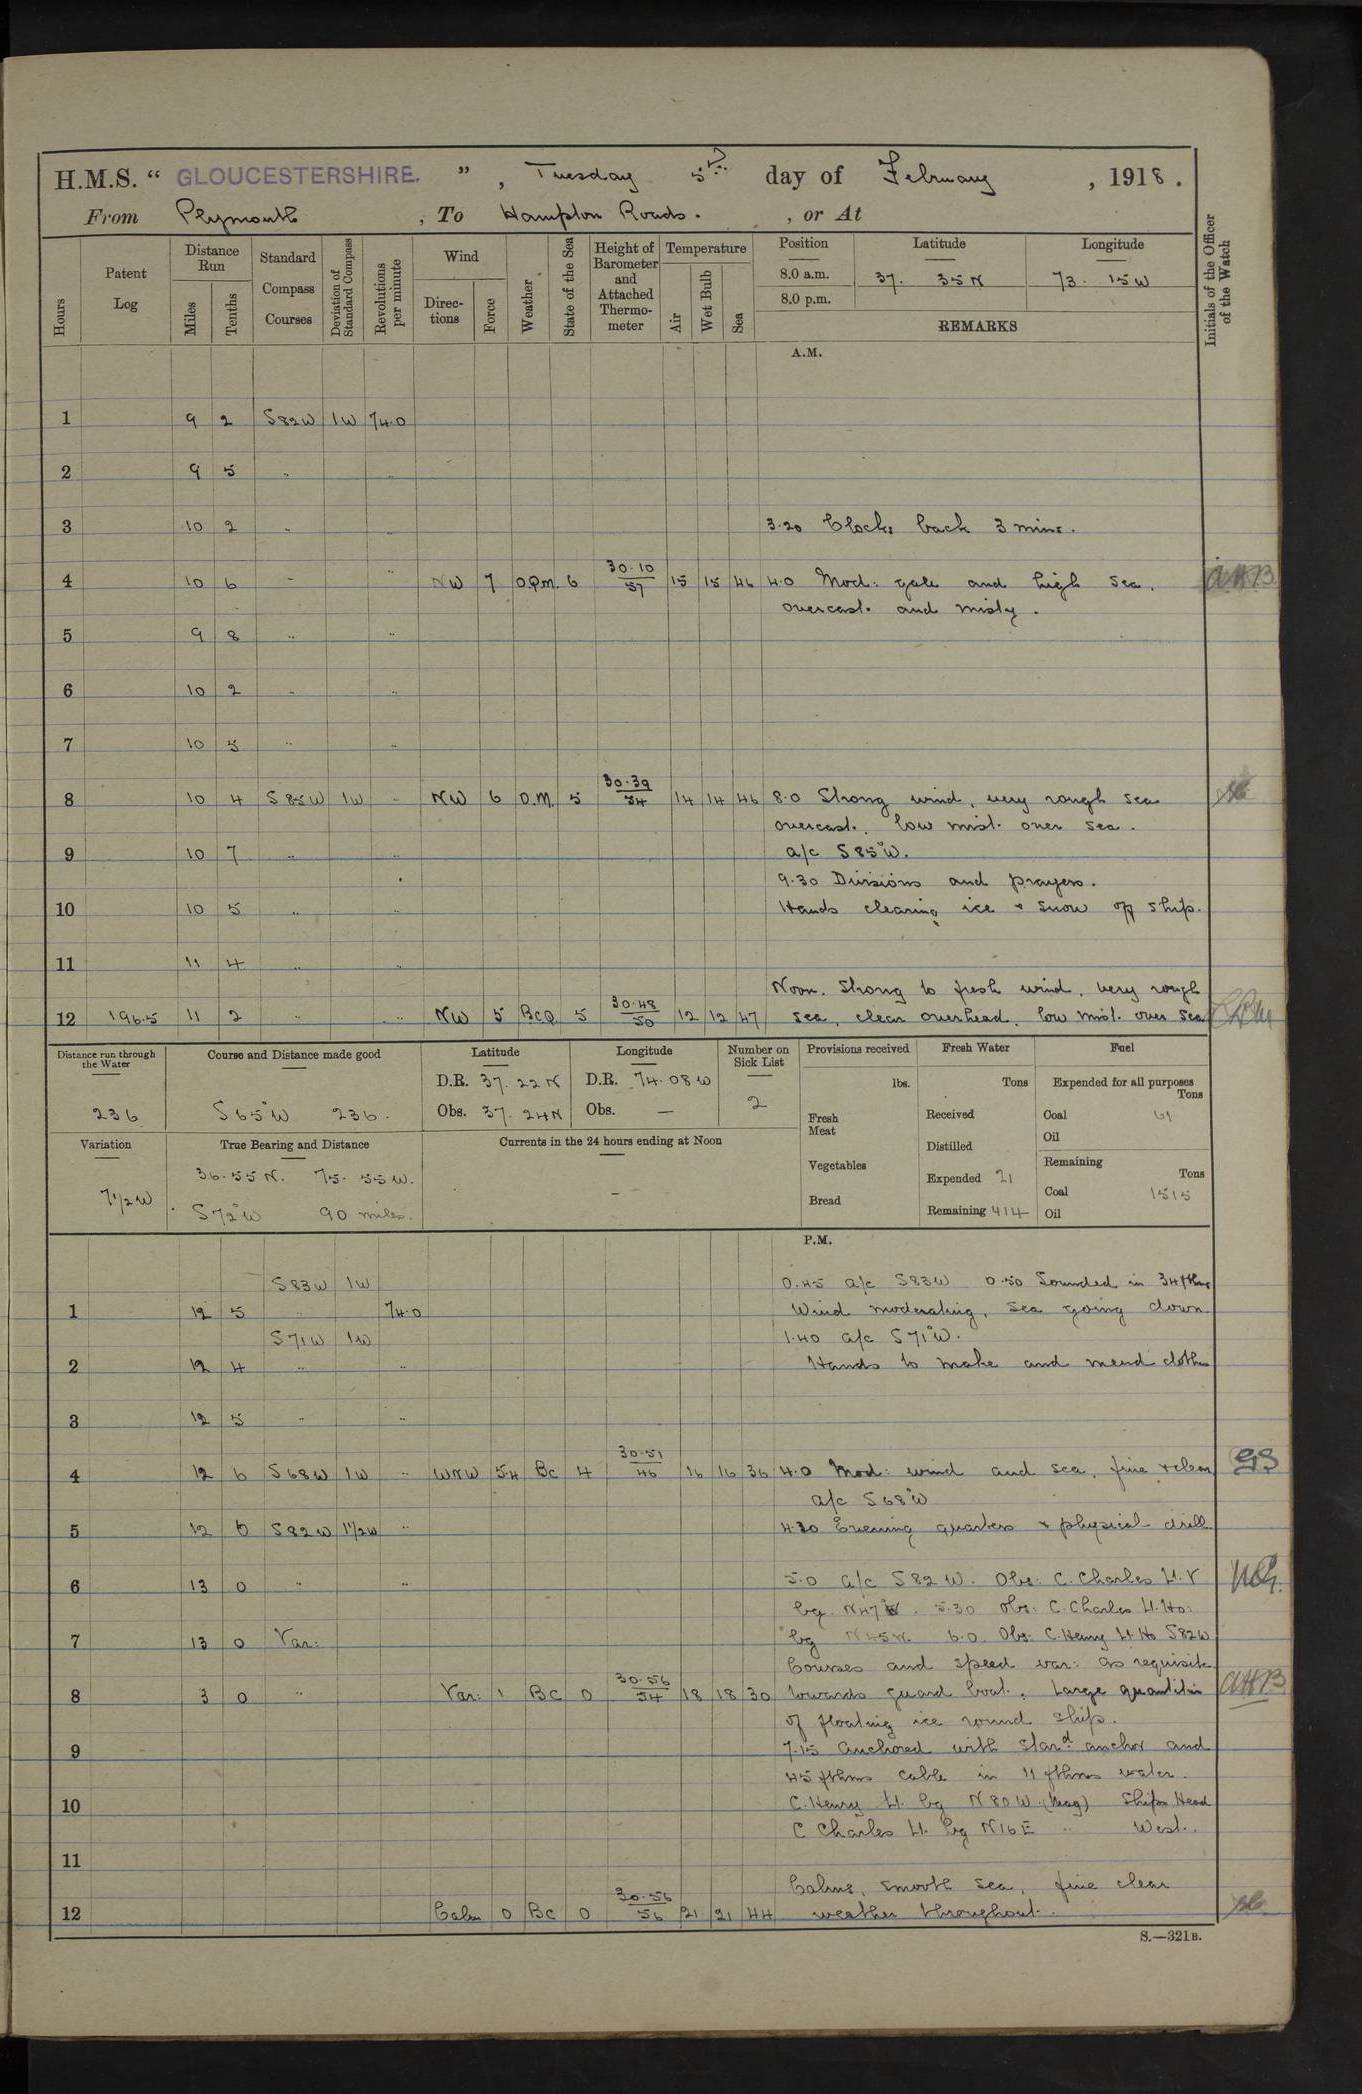 H.M.S. “ GLOUCESTERSHIRE. ” , Tuesday 5th day of February , 1918 .
From Plymouth , To Hampton Roads. , or At
Hours Patent Log Distance Run Miles Tenths Standard Compass Courses Deviation of Standard Compass Revolutions per minute Wind Directions Force Weather State of the Sea Height of Barometer and Attached Thermometer Temperature Air Wet Bulb Sea Position Latitude Longitude Initials of the Officer of the Watch
8.0 a.m. 37. 35 N 73. 15 W
8.0 p.m.
REMARKS
A.M.
1 9 2 S82W 1W 74.0
2 9 5 " "
3 10 2 " " 3.20 Clocks back 3 mins.
4 10 6 " " NW 7 O.Q.m. 6 30.10 57 15 15 46 4.0 Mod: gale and high sea. AHB
overcast. and misty.
5 9 8 " "
6 10 2 " "
7 10 5 " "
8 10 4 S85W 1W " NW 6 O.M. 5 30.39 54 14 14 46 8.0 Strong wind, very rough sea
overcast, low mist over sea.
9 10 7 " " a/c S85°W.
9.30 Divisions and prayers.
10 10 5 " " Hands clearing ice & snow off ship.
11 11 4 " "
Noon. Strong to fresh wind, very rough
12 196.5 11 2 " NW 5 BcQ. 5 30.48 50 12 12 47 sea, clear overhead, low mist over sea
Distance run through the Water Course and Distance made good Latitude Longitude Number on Sick List Provisions received Fresh Water Fuel
D.R. 37. 22 N D.R. 74.08 W lbs. Tons Expended for all purposes Tons
236 S65°W 236. Obs. 37. 24N Obs. — 2 Fresh Meat Received Coal 61
Oil
Variation True Bearing and Distance Currents in the 24 hours ending at Noon Distilled
Remaining Tons
36.55 N. 75. 55 W. Vegetables Expended 21
7½W S72°W 90 miles. – Bread Remaining 414 Coal 1515
Oil
P.M.
S83W 1W 0.45 a/c S83W 0.50 Sounded in 34 fthms
1 12 5 " 74.0 Wind moderating, sea going down.
S71W 1W 1.40 a/c S71°W.
2 12 4 " " Hands to make and mend clothes
3 12 5 " "
4 12 6 S68W 1W " WNW 5.4 Bc 4 30.51 46 16 16 36 4.0 Mod: wind and sea, fine & clear
a/c S68°W
5 12 6 S82W 1½W " 4.30 Evening quarters & physical drill
6 13 0 " " 5.0 a/c S82W. Obs: C. Charles Lt. V
bg. N47W. 5.30 Obs: C. Charles Lt. Ho:
7 13 0 Var: bg N45W. 6.0. Obs: C. Henry Lt Ho S82W
Courses and speed var: as requisite
8 3 0 " Var: 1 Bc 0 30.56 54 18 18 30 towards guard boat. Large quantities AHB
of floating ice round ship.
9 7.15 Anchored with Starbd anchor and
45 fthms cable in 11 fthms water.
10 C. Henry Lt. bg N80W (Mag) Ships Head
C Charles Lt. bg N16E " West.
11
Calms, smooth sea, fine clear
12 Calm 0 Bc 0 30.56 56 21 21 44 weather throughout.
S.—321B.